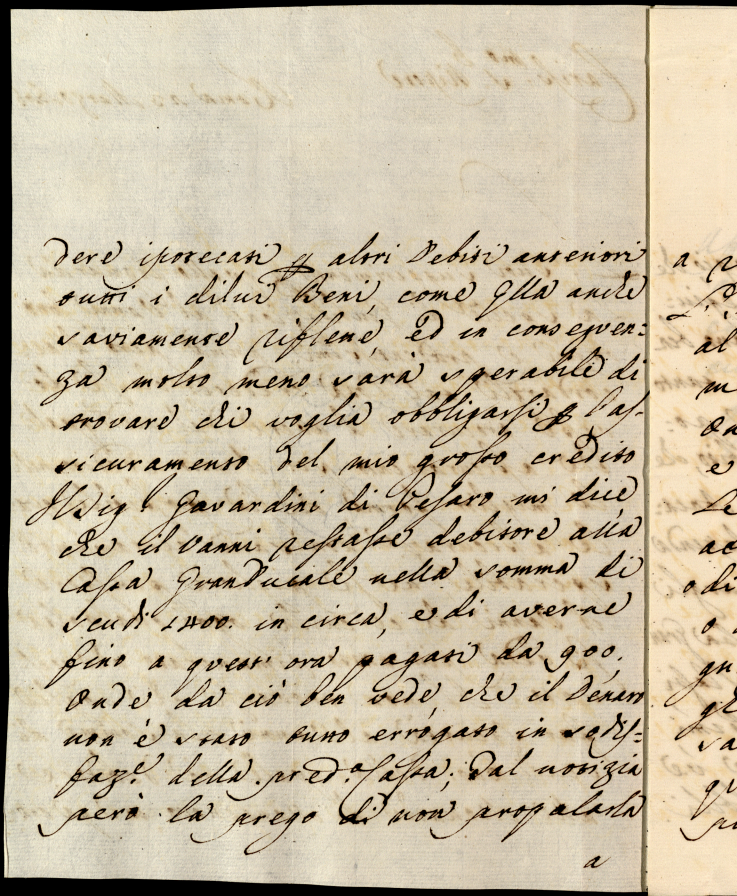 dere ipotecati p altri Debiti anteriori
tutti i dilui Beni, come Ella anche
saviamente riflette, ed in conseguen:
za molto meno sarà sperabile di
trovare chi voglia obbligarsi p l'as-
sicuramento del mio grosso credito
Il Sig.r Gavardini di Pesaro mi dice
che il Vanni restasse debitore alla
Cassa GranDucale nella somma di
scudi 1400. in circa, e di averne
fino a quest'ora pagati da 900.
Onde da ciò ben vede, che il Denaro
non è stato tutto errogato in sodis-
faz.e della pred.a Cassa; Dal notizia
però la prego di non propalarla
a